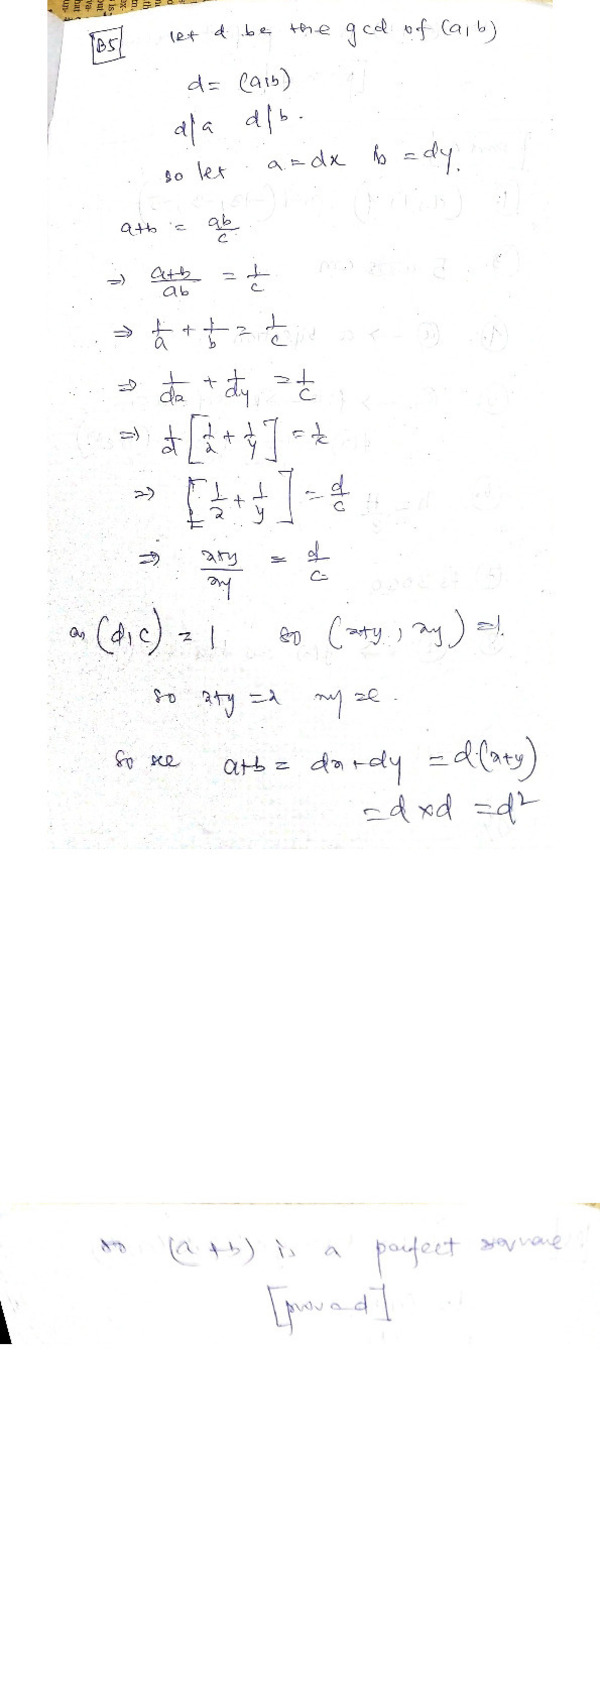 B5 let d be the gcd of (a,b)
d = (a,b)
d/a d/b.
so let a = dx b = dy.
a+b = ab/c
⇒ a+b/ab = 1/c
⇒ 1/a + 1/b = 1/c
⇒ 1/dx + 1/dy = 1/c
⇒ 1/d [1/x + 1/y] = 1/c
⇒ [1/x + 1/y] = d/c
⇒ x+y/xy = d/c
as (d,c) = 1, so (x+y, xy) = 1.
so x+y = d xy = c.
So a+b = dx+dy = d(x+y)
= d×d = d²
so (a+b) is a perfect square
[proved]